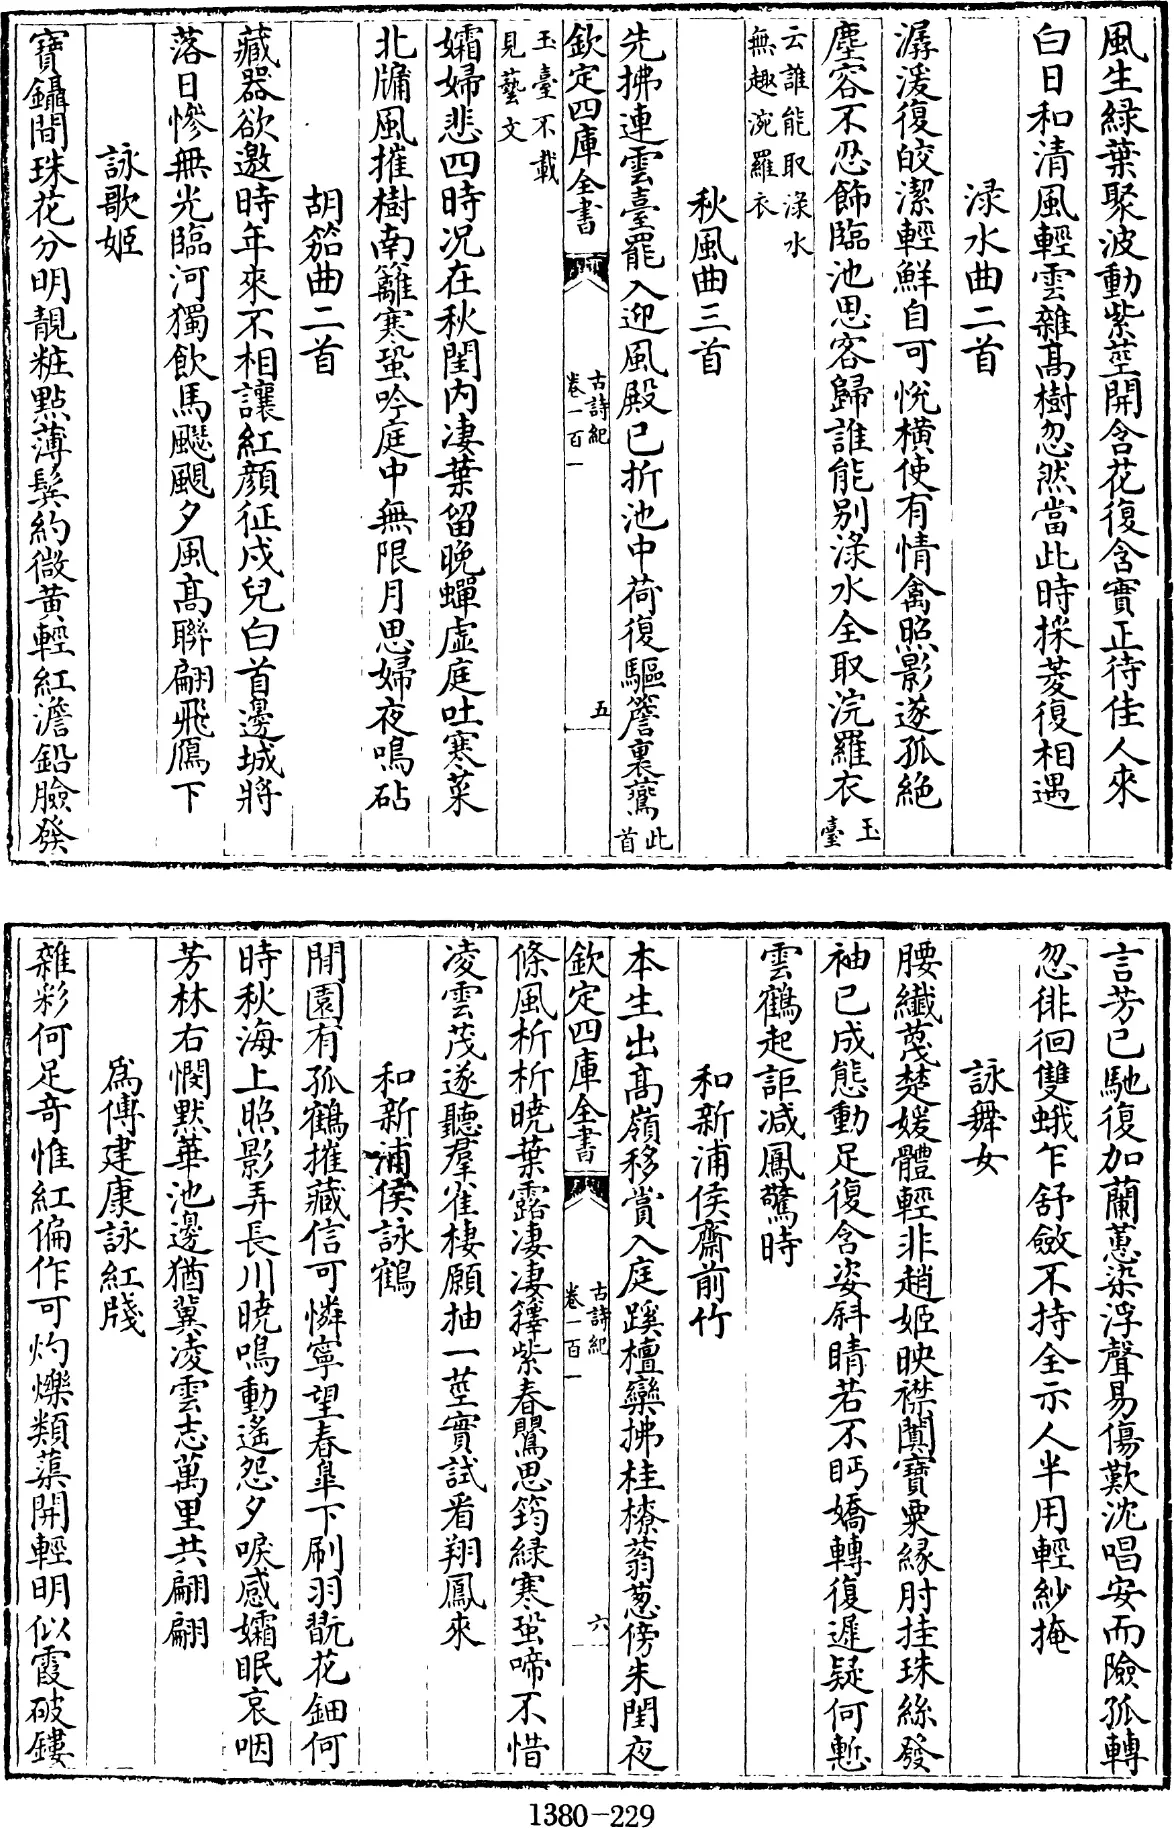 風生緑葉聚波動紫莖開含花復含實正待佳人來
白日和清風輕雲雜髙樹忽然當此時採菱復相遇
渌水曲二首
潺湲復皎潔輕鮮自可悅横使有情禽照影遂孤絶
塵容不忍飾臨池思客歸誰能别渌水全取浣羅衣玉臺
云誰能取渌水
無趣涴羅衣
秋風曲三首
先拂連雲臺罷入迎風殿已折池中荷復驅簷裏鷰此首
欽定四庫全書
古詩紀
卷一百一
五
玉臺不載
見藝文
孀婦悲四時况在秋閨内凄葉留晚蟬虚庭吐寒菜
北牖風摧樹南籬寒蛩吟庭中無限月思婦夜鳴砧
胡笳曲二首
藏器欲邀時年來不相讓紅顔征戍兒白首邊城將
落日慘無光臨河獨飲馬颸颸夕風髙聯翩飛鴈下
詠歌姬
寶鑷間珠花分明靚粧點薄鬢約微黄輕紅澹鉛臉發
言芳已馳復加蘭蕙染浮聲易傷歎沈唱安而險孤轉
忽徘徊雙蛾乍舒斂不持全示人半用輕紗掩
詠舞女
腰纖蔑楚媛體輕非趙姬映襟闐寶粟緣肘挂珠絲發
袖已成態動足復含姿斜睛若不眄嬌轉復遲疑何慙
雲鶴起詎减鳳驚時
和新浦侯齋前竹
本生出髙嶺移賞入庭蹊檀欒拂桂橑蓊葱傍朱閨夜
欽定四庫全書
古詩紀
卷一百一
六
條風析析曉葉露凄凄籜紫春鸎思筠緑寒蛩啼不惜
凌雲茂遂聽羣雀棲願抽一莖實試看翔鳳來
和新浦侯詠鶴
閒園有孤鶴摧藏信可憐寧望春臯下刷羽翫花鈿何
時秋海上照影弄長川曉鳴動遙怨夕唳感孀眠哀咽
芳林右憫黙華池邊猶冀凌雲志萬里共翩翩
爲傅建康詠紅牋
雜彩何足竒惟紅偏作可灼爍類蕖開輕明似霞破鏤
1380-229